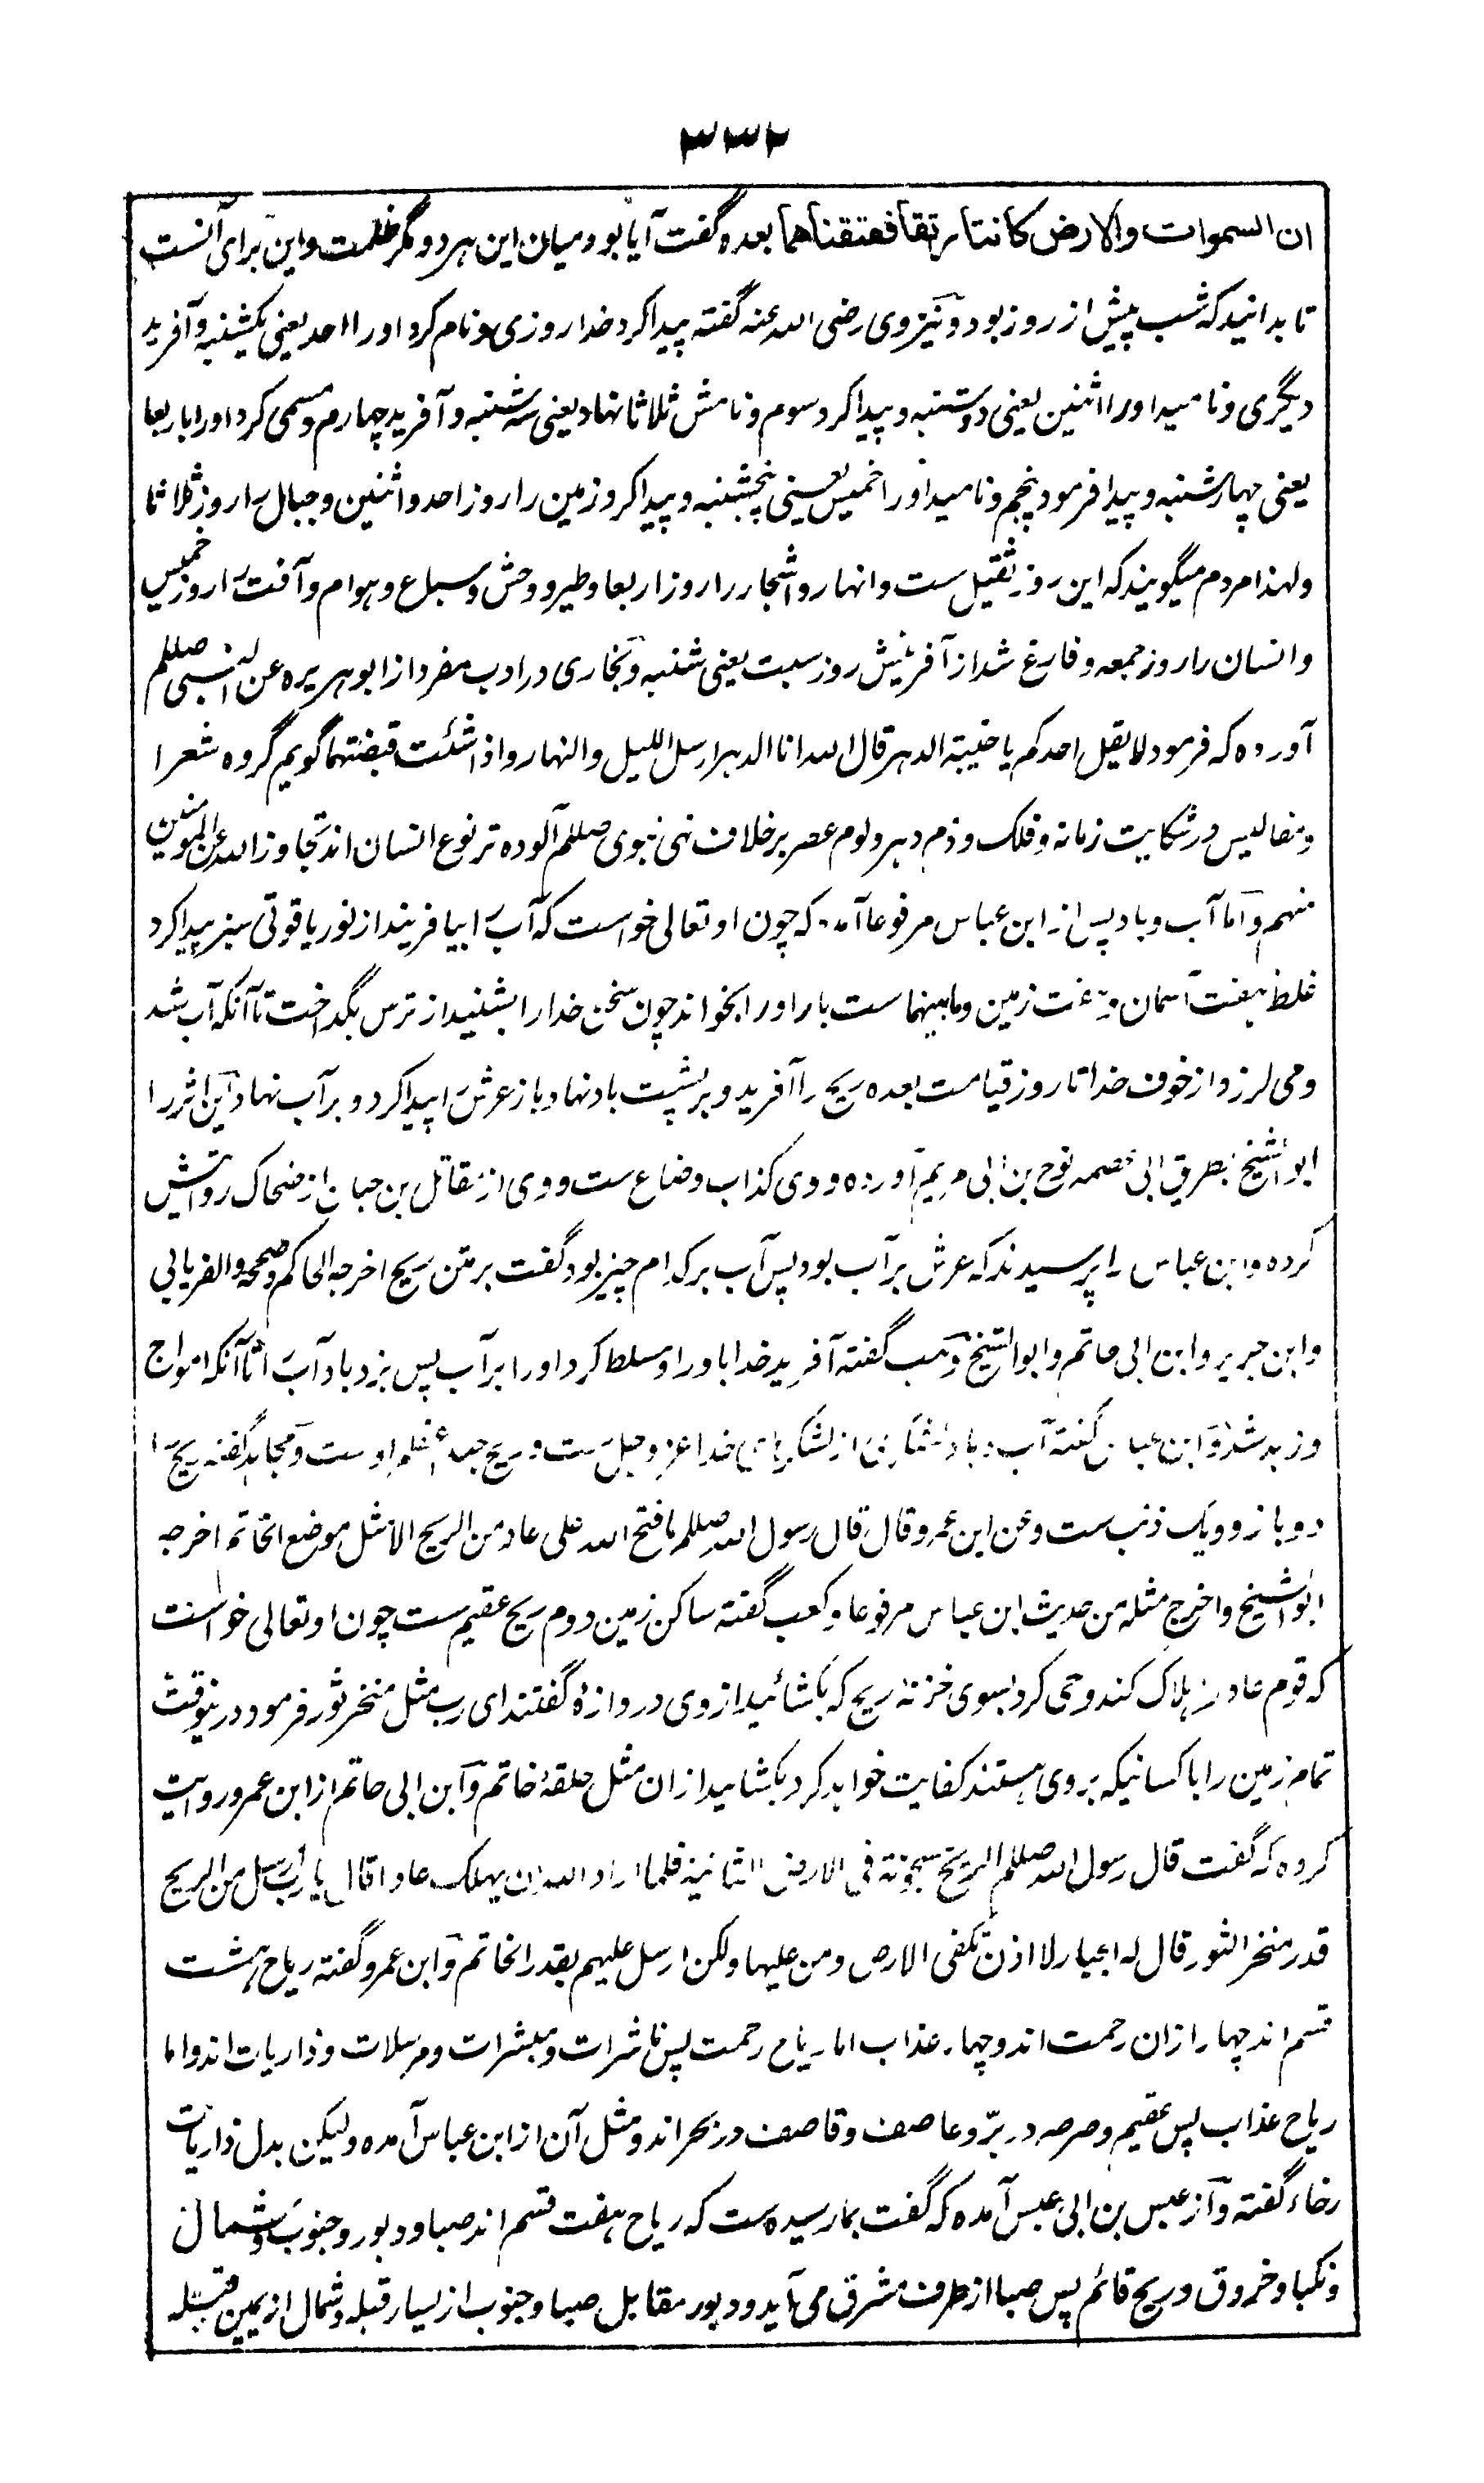 ۳۳۲
ان السموات والارض کانتا رتقا ففتقناهما بعده گفت آیا بود میان این هر دو مگر ظلمت واین برای آنست
تا بدانید که شب پیش از روز بود و نیز وی رضی الله عنه گفته پیدا کرد خدا روزی و نام کرد او را احد یعنی یکشنبه و آفرید
دیگری و نامید او را اثنین یعنی دوشنبه و پیدا کرد سوم و نامش ثلاثا نهاد یعنی سه شنبه و آفرید چهارم و مسمی کرد او را باربعا
یعنی چهارشنبه و پیدا فرمود پنجم و نامید او را خمیس یعنی پنجشنبه و پیدا کرد زمین را روز احد و اثنین و جبال را روز ثلاثا
ولهذا مردم میگویند که این روز ثقیل ست و انهار و اشجار را روز اربعا و طیر و وحش و سباع و هوام و آفت را روز خمیس
و انسان را روز جمعه و فارغ شد از آفرینش روز سبت یعنی شنبه و بخاری در ادب مفرد از ابو هریره عن النبی صللم
آورده که فرمود لا یقل احدکم یا خیبة الدهر قال الله انا الدهر ارسل اللیل والنهار واذا شئت قبضتهما گویم گروه شعرا
و مفالیس در شکایت زمانه و فلک و ذم دهر و لوم عصر بر خلاف نهی نبوی صللم آلوده تر نوع انسان اند تجاوز الله عن المومنین
منهم و اما آب و باد پس از ابن عباس مرفوعا آمده که چون او تعالی خواست که آب را بیافریند از نور یاقوتی سبز پیدا کرد
غلظ هفت آسمان و هفت زمین و مابینهما ست باز او را بخواند چون سخن خدا را بشنید از ترس بگداخت تا آنکه آب شد
و می لرزد از خوف خدا تا روز قیامت بعده ریح را آفرید و بر پشت باد نهاد باز عرش را پیدا کرد و بر آب نهاد این اثر را
ابو الشیخ بطریق ابی عصمه نوح بن ابی مریم آورده و وی کذاب وضاع ست و وی از مقاتل بن حبان از ضحاک روایتش
کرده و ابن عباس را پرسیدند که عرش بر آب بود پس آب بر کدام چیز بود گفت بر متن ریح اخرجه الحاکم و صححه والفریابی
وابن جریر وابن ابی حاتم و ابو الشیخ و کعب گفته آفرید خدا باد را و مسلط کرد او را بر آب پس بزد باد آب را تا آنکه امواج
و زبد شد و ابن عباس گفته آب و باد لشکری از لشکرهای خدا عز و جل ست و ریح جند اعظم اوست و مجاهد گفته ریح را
دو بازو و یک ذنب ست و عن ابن عمرو قال قال رسول الله صللم ما فتح الله علی عاد من الریح الا مثل موضع الخاتم اخرجه
ابو الشیخ و اخرج مثله من حدیث ابن عباس مرفوعا و کعب گفته ساکن زمین دوم ریح عقیم ست چون او تعالی خواست
که قوم عاد را هلاک کند وحی کرد بسوی خزنه ریح که بکشائید از وی دروازه گفتند ای رب مثل منخر ثور فرمود درینوقت
تمام زمین را با کسانیکه بر وی هستند کفایت خواهد کرد بکشایید ازان مثل حلقه خاتم و ابن ابی حاتم از ابن عمرو روایت
کرده که گفت قال رسول الله صللم الریح مسجونة فی الارض الثانیة فلما اراد الله ان یهلک عادا قال یا رب ارسل من الریح
قدر منخر الثور قال له الجبار لا اذن تکفی الارض ومن علیها ولکن ارسل علیهم بقدر الخاتم و ابن عمرو گفته ریاح هشت
قسم اند چهار ازان رحمت اند و چهار عذاب اما ریاح رحمت پس ناشرات و مبشرات و مرسلات و ذاریات اند و اما
ریاح عذاب پس عقیم و صرصر در برّ و عاصف و قاصف در بحر اند و مثل آن از ابن عباس آمده و لیکن بدل ذاریات
رخاء گفته و از عیس بن ابی عیس آمده که گفت بما رسیده ست که ریاح هفت قسم اند صبا و دبور و جنوب و شمال
و نکبا و خروق و ریح قائم پس صبا از طرف مشرق می آید و دبور مقابل صبا و جنوب از یسار قبله و شمال از یمین قبله